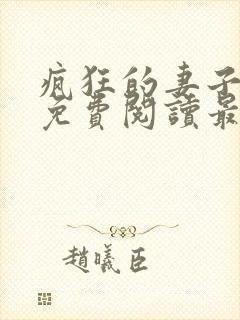 疯狂的妻子
免費閱讀最
趙曦臣